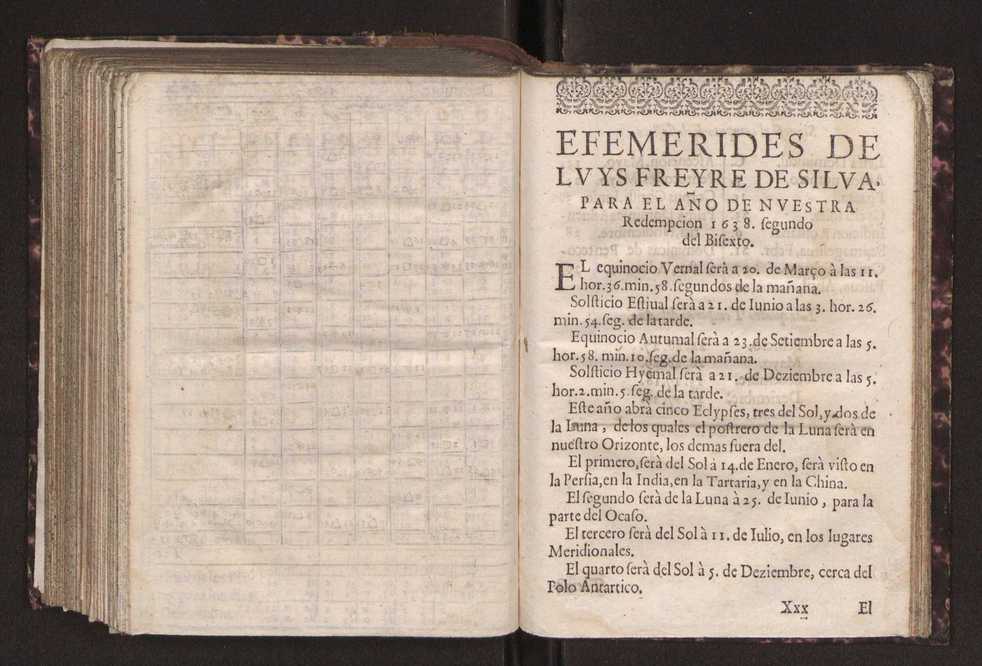 EFEMERIDES DE
LVYS FREYRE DE SILVA,
PARA EL AÑO DE NVESTRA
Redempcion 1638. ſegundo
del Biſexto.
EL equinocio Vernal ſerà a 20. de Março à las 11.
hor. 36. min. 58. ſegundos de la mañana.
Solſticio Eſtiual ſerà a 21. de Iunio a las 3. hor. 26.
min. 54. ſeg. de la tarde.
Equinocio Autumal ſerà a 23. de Setiembre a las 5.
hor. 58. min. 10. ſeg. de la mañana.
Solſticio Hyemal ſerà a 21. de Deziembre a las 5.
hor. 2. min. 5. ſeg. de la tarde.
Eſte año abrà cinco Eclypſes, tres del Sol, y dos de
la Luna, de los quales el poſtrero de la Luna ſerà en
nueſtro Orizonte, los demas fuera del.
El primero, ſerà del Sol à 14. de Enero, ſerà viſto en
la Perſia, en la India, en la Tartaria, y en la China.
El ſegundo ſerà de la Luna à 25. de Iunio, para la
parte del Ocaſo.
El tercero ſerà del Sol à 11. de Iulio, en los lugares
Meridionales.
El quarto ſerà del Sol à 5. de Deziembre, cerca del
Polo Antartico.
Xxx El